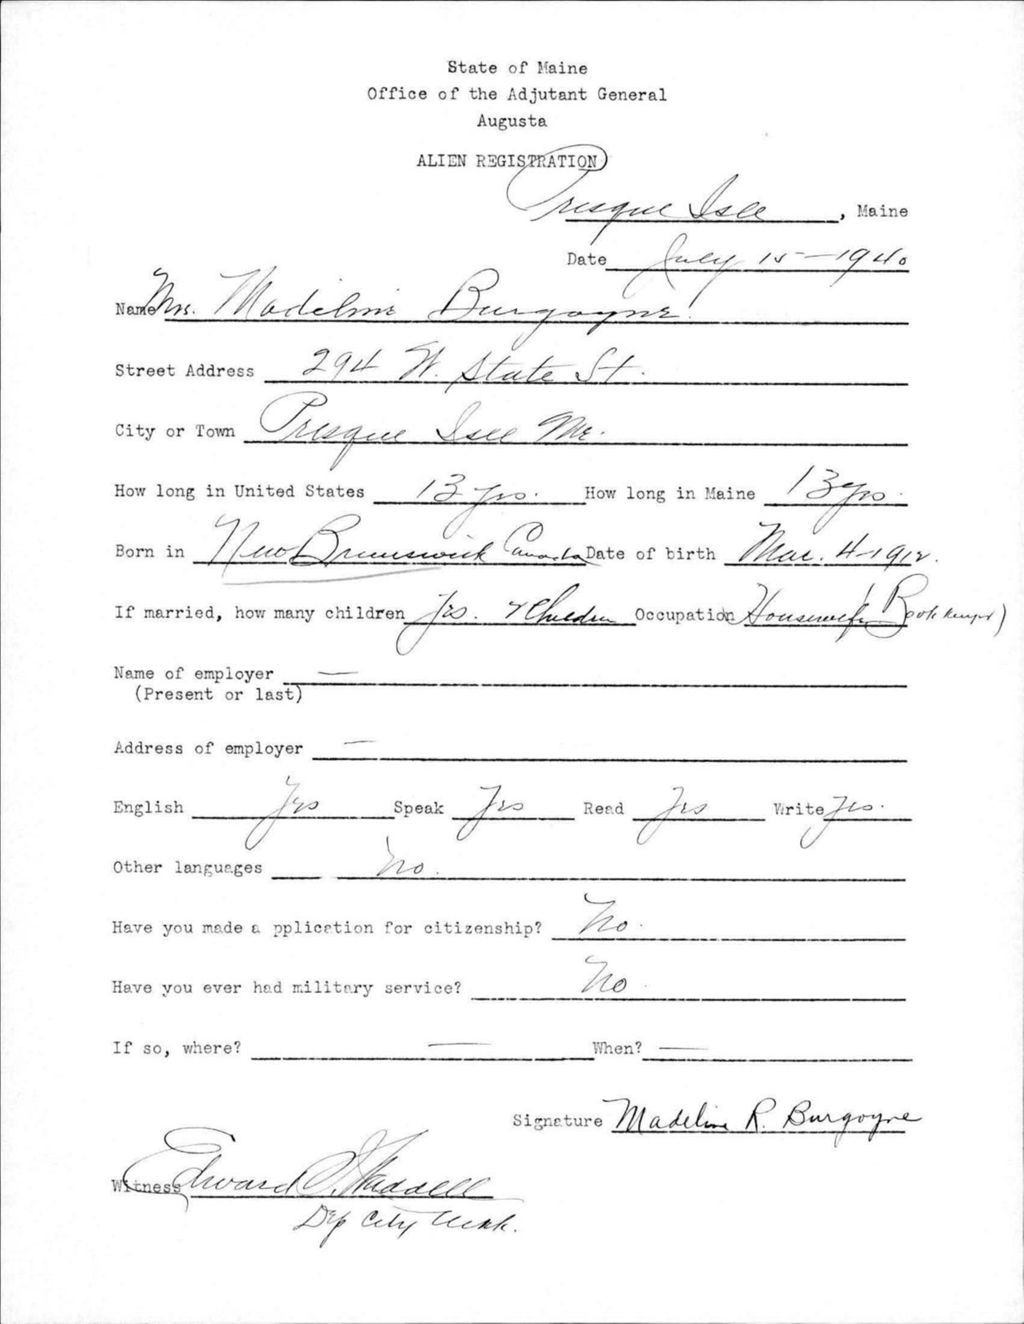 State of Maine
Office of the Adjutant General
Augusta
ALIEN REGISTRATION
Presque Isle, Maine
Date July 15-1940
Name Mrs. Madeline Burgoyne
Street Address 294 W. State St.
City or Town Presque Isle Me.
How long in United States 13 yrs. How long in Maine 13 yrs.
Born in New Brunswick Canada Date of birth Mar. 4-1912.
If married, how many children Yes. Children Occupation Housewife (Book keeper)
Name of employer —
(Present or last)
Address of employer —
English Yes Speak Yes Read Yes Write Yes.
Other languages No.
Have you made a pplication for citizenship? No.
Have you ever had military service? No.
If so, where? — When? —
Signature Madeline R. Burgoyne
Witness Edward Waddell
Dep City Clerk.